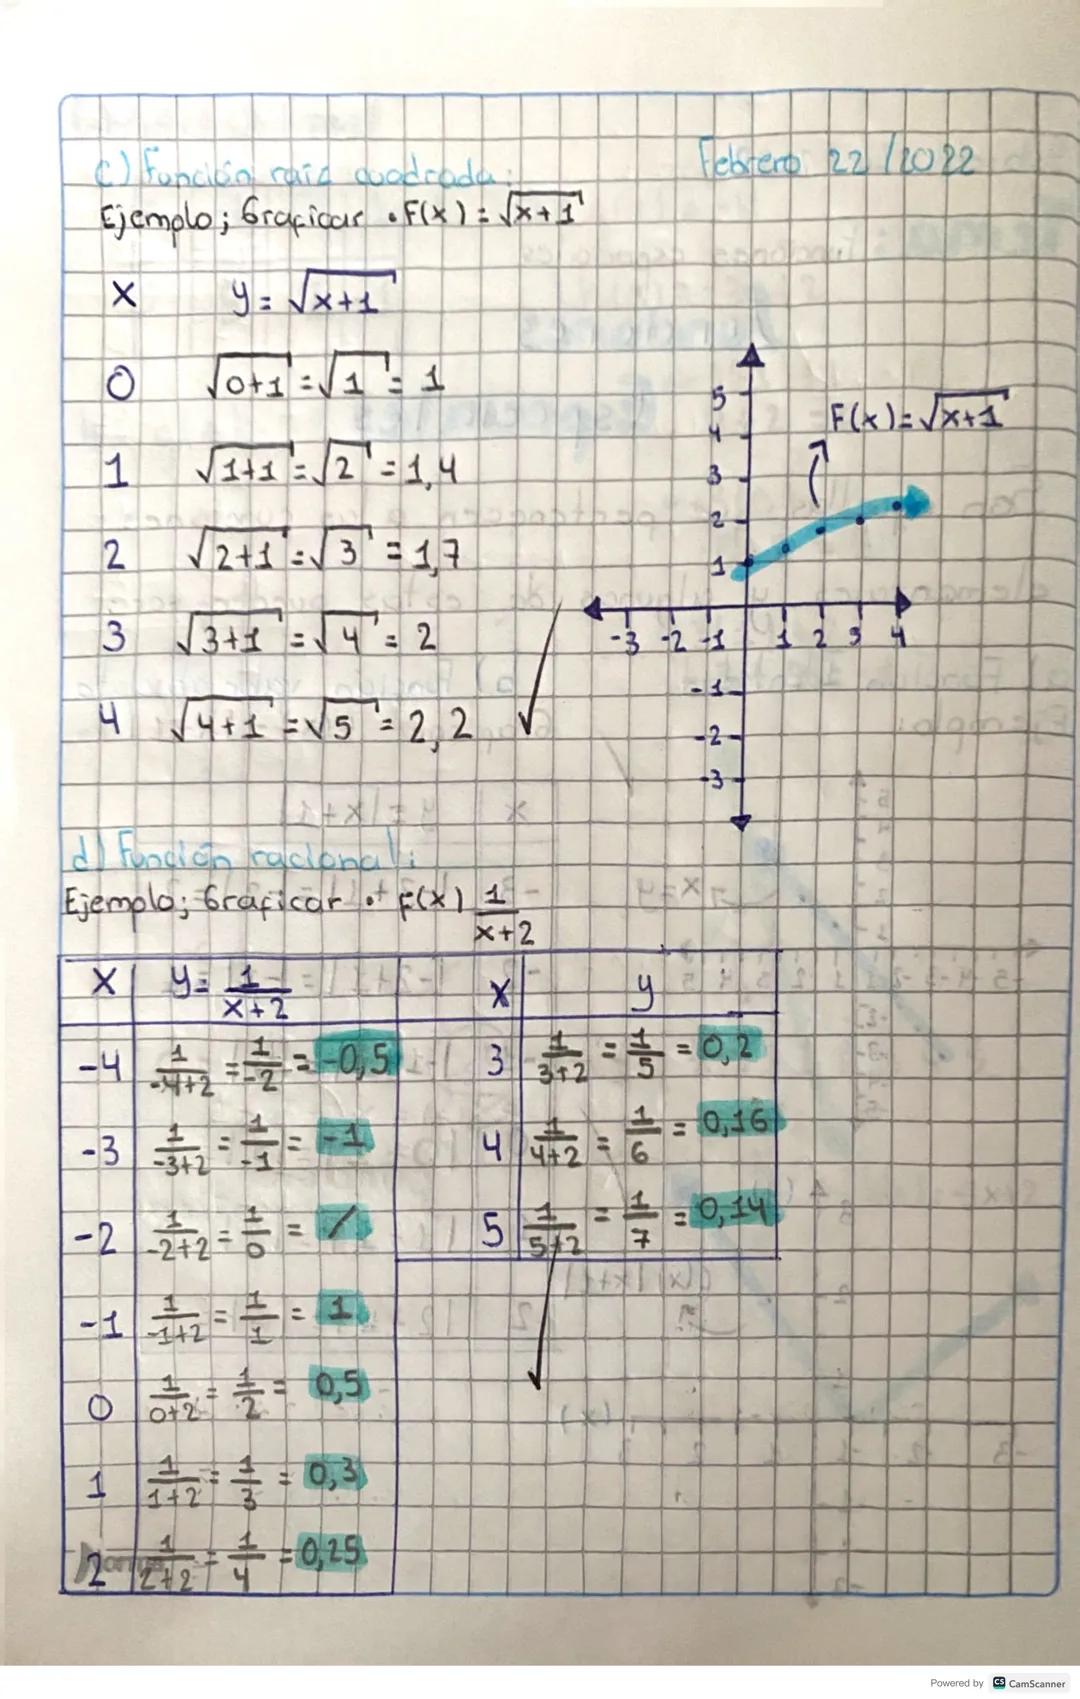 c) Función raíz cuadrada:
Febrero 22/2022
Ejemplo; Graficar • F(x) = √x+1
x y = √x+1
0 √0+1 = √1 = 1
1 √1+1 = √2 = 1,4
2 √2+1 = √3 = 1,7
3 √3+1 = √4 = 2
4 √4+1 = √5 = 2,2
5
4
3
2
1
F(x) = √x+1
-3 -2 -1 1 2 3 4
-1
-2
-3
d) Función racional:
Ejemplo; Graficar • F(x) 1/x+2
x y = 1/x+2 x y
-4 1/-4+2 = 1/-2 = -0,5 3 1/3+2 = 1/5 = 0,2
-3 1/-3+2 = 1/-1 = -1 4 1/4+2 = 1/6 = 0,16
-2 1/-2+2 = 1/0 = / 5 1/5+2 = 1/7 = 0,14
-1 1/-1+2 = 1/1 = 1
0 1/0+2 = 1/2 = 0,5
1 1/1+2 = 1/3 = 0,3
2 1/2+2 = 1/4 = 0,25
Powered by CS CamScanner